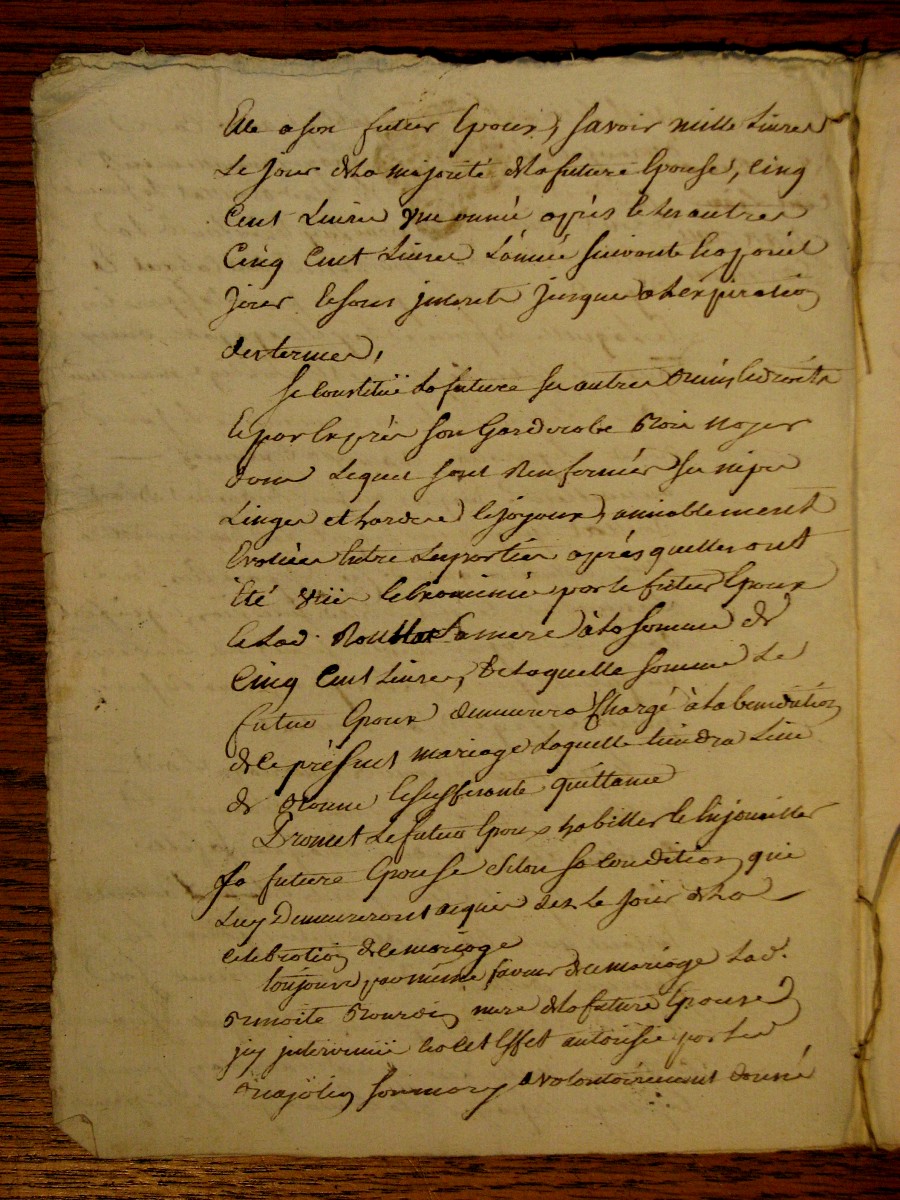 Elle a son futur Epoux, savoir mille Livres
Le Jour de La majorité de La future Epouse, Cinq
Cent Livres une année après et Les autres
Cinq Cent Livres L'année suivante
sans jnteret jusques a Lexpiration
des termes,
Se Constitue La future ses autres droits
Et par Exprès son Garderobe Bois noyer
dans Lequel sont Renfermés ses nipes
Linges et hardes Et joyeux, amiablement
Evalués Entre Les parties après quelles ont
Été vüe Et Exáminé par le futur Epoux
Et Lad. sa mere à La somme de
Cinq Cent Livres, de Laquelle somme Le
futur Epoux demeurera Chargé à La benediction
de Ce présent mariage Laquelle tiendra Lieu
de bonne Et suffisante quittance
Promet Le futur Epoux habiller Et Enjouailler
Sa future Epouse selon sa Condition, qui
Luy Demeureront acquis des Le Jour de La
celebration de Ce mariage
toujours par même faveur de Ce mariage Lad.
mere de La future Epouse
jcy jntervenüe a Cet Effet autorisée par Led
son mary a volontairement donné